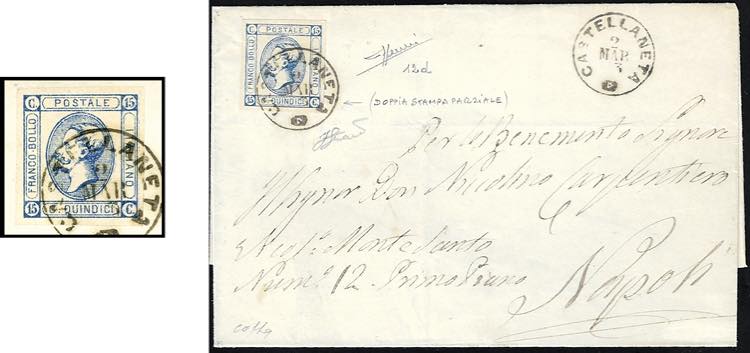 C. POSTALE 15
FRANCO BOLLO
ITALIANO
15 C. QUINDICI C.
CASTELLANETA
2
MAR
C. POSTALE 15
FRANCO BOLLO
ITALIANO
15 C. QUINDICI C.
CASTELLANETA
2
MAR
12d
(DOPPIA STAMPA PARZIALE)
CASTELLANETA
2
MAR
3
Per il Benemerito Signore
Il Signor Don Nicolino Carpentiero
Monte Santo
Num.o 12. Primo Piano
Napoli